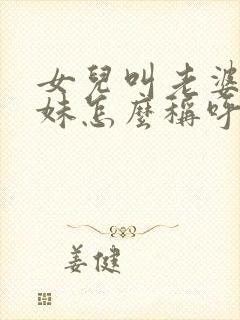 女兒叫老婆
妹怎麼稱呼
姜健